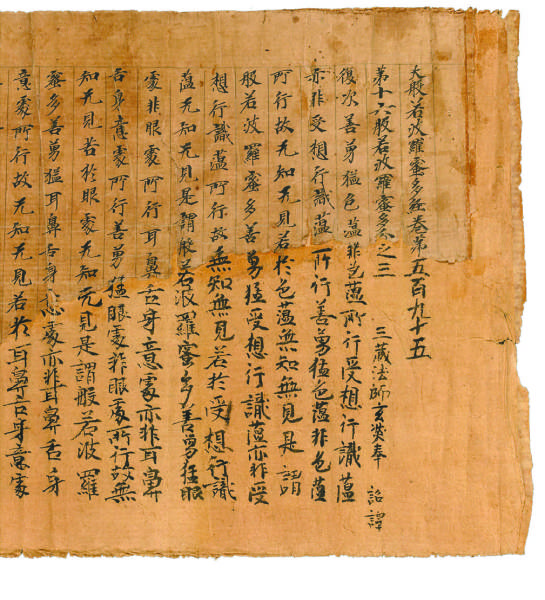 大般若波羅蜜多經卷第五百九十五
第十六般若波羅蜜多分之三 三藏法師玄奘奉 詔譯
復次善勇猛色蘊非色蘊所行受想行識蘊
亦非受想行識蘊所行善勇猛色蘊非色蘊
所行故无知无見若於色蘊無知無見是謂
般若波羅蜜多善勇猛受想行識蘊亦非受
想行識蘊所行故無知無見若於受想行識
蘊无知无見是謂般若波羅蜜多善勇猛眼
處非眼處所行耳鼻舌身意處亦非耳鼻
舌身意處所行善勇猛眼處非眼處所行故無
知无見若於眼處无知无見是謂般若波羅
蜜多善勇猛耳鼻舌身意處亦非耳鼻舌身
意處所行故无知无見若於耳鼻舌身意處